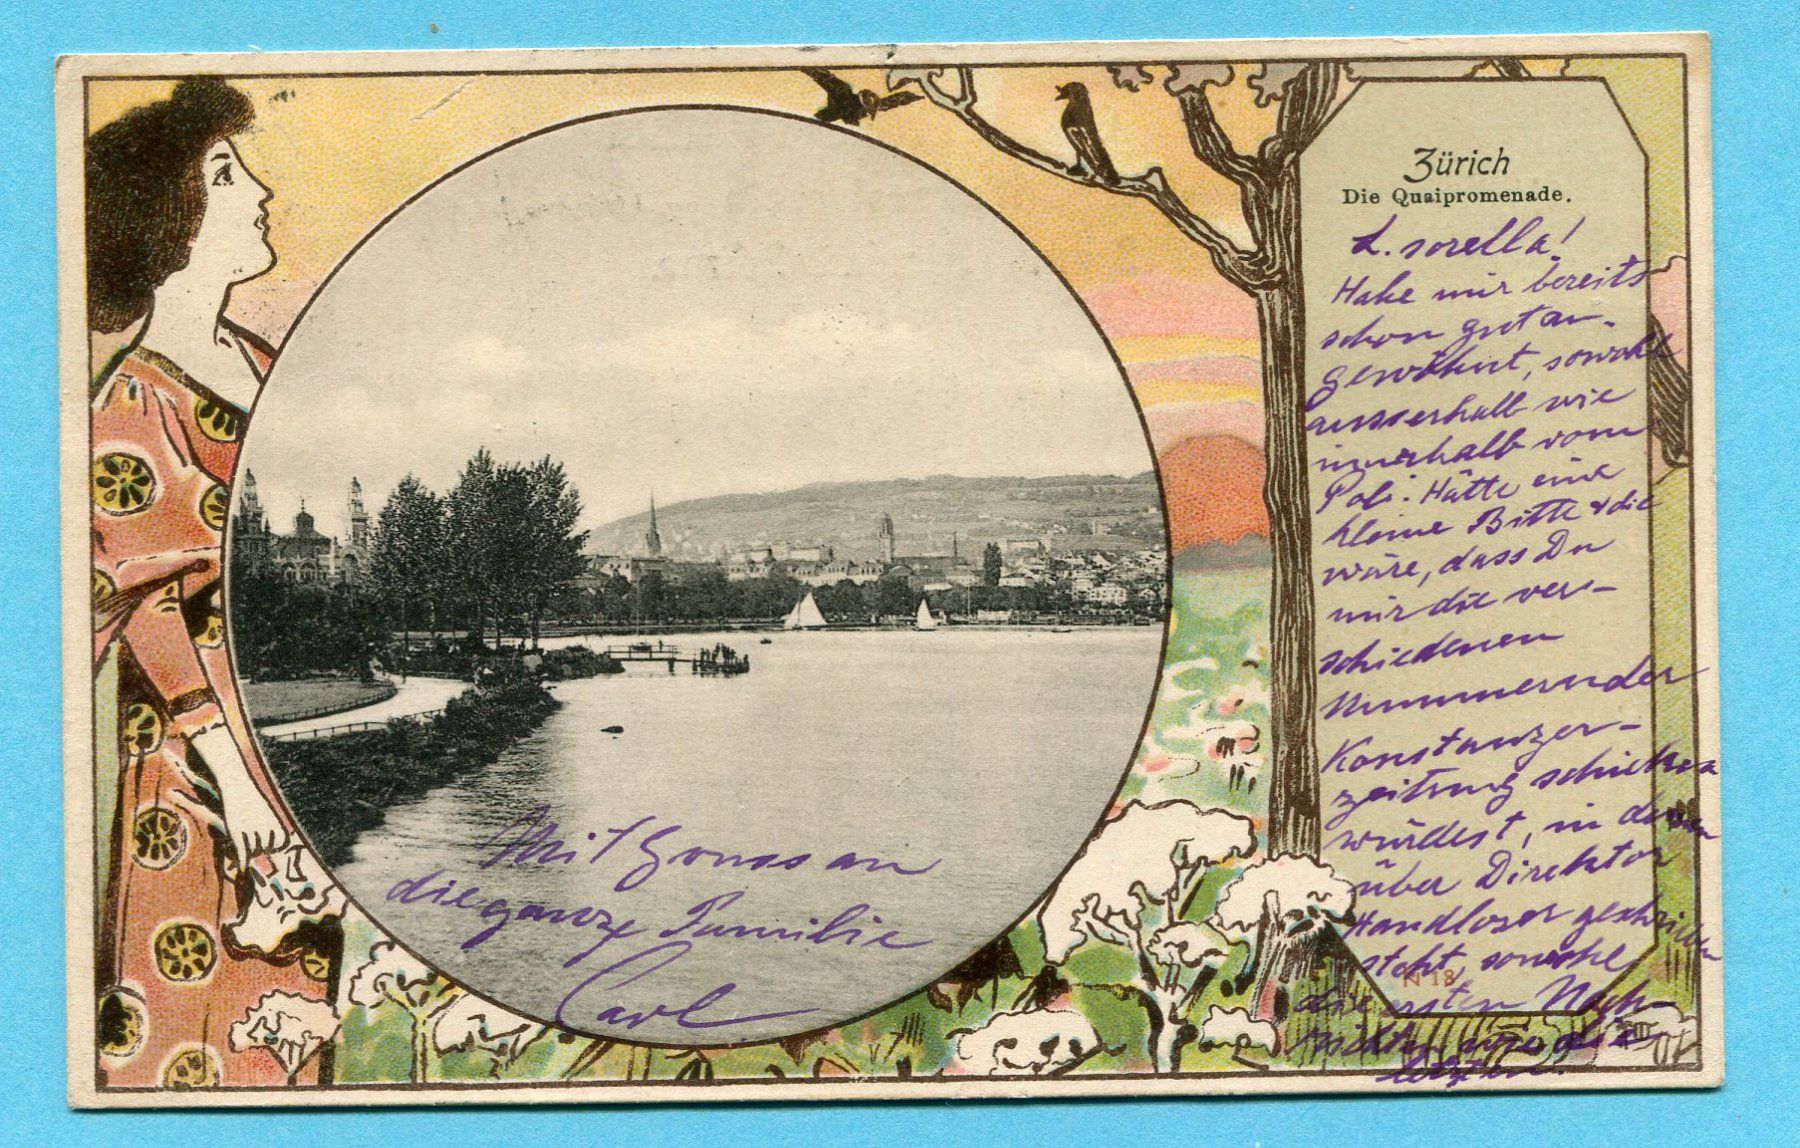 Zürich
Die Quaipromenade.
L. sorella!
Habe mir bereits
schon gut an-
gewöhnt, sowohl
ausserhalb wie
innerhalb vom
Poli. Hätte eine
kleine Bitte & die
wäre, dass Du
mir die ver-
schiedenen
Nummern der
Konstanzer-
zeitung schicken
würdest, in denen
über Direktor
Handloser geschrieben
steht, sowohl
die ersten Nach-
richten wie die
letzten.
N 18
Mit Gruss an
die ganze Familie
Carl